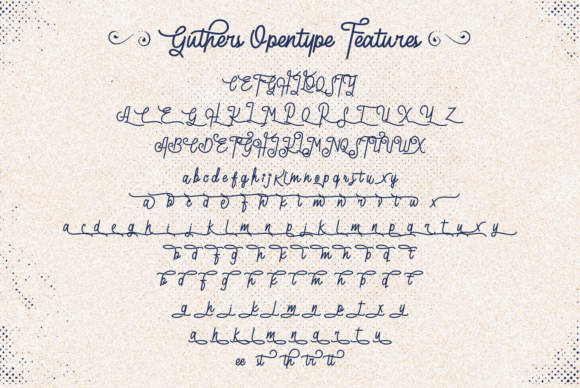 Guthers Opentype Features
C E F G H I J K O Q S T Y
A C E G H K L M P Q R S T U X Y Z
A B C D E F G H I J K L M N Q S T U V W X
a b c d e f g h i j k l m n o p q r s t u x y
a b c d e f h k l m n r s t u w x
a c d e g h i j k l m n p j k l m n p q r t u x y
b d f g h k l m h p d t
b d f g h k l m h p d t
g h j k l m n p t x y
a h k l m n q r t u
ee st th tr tt